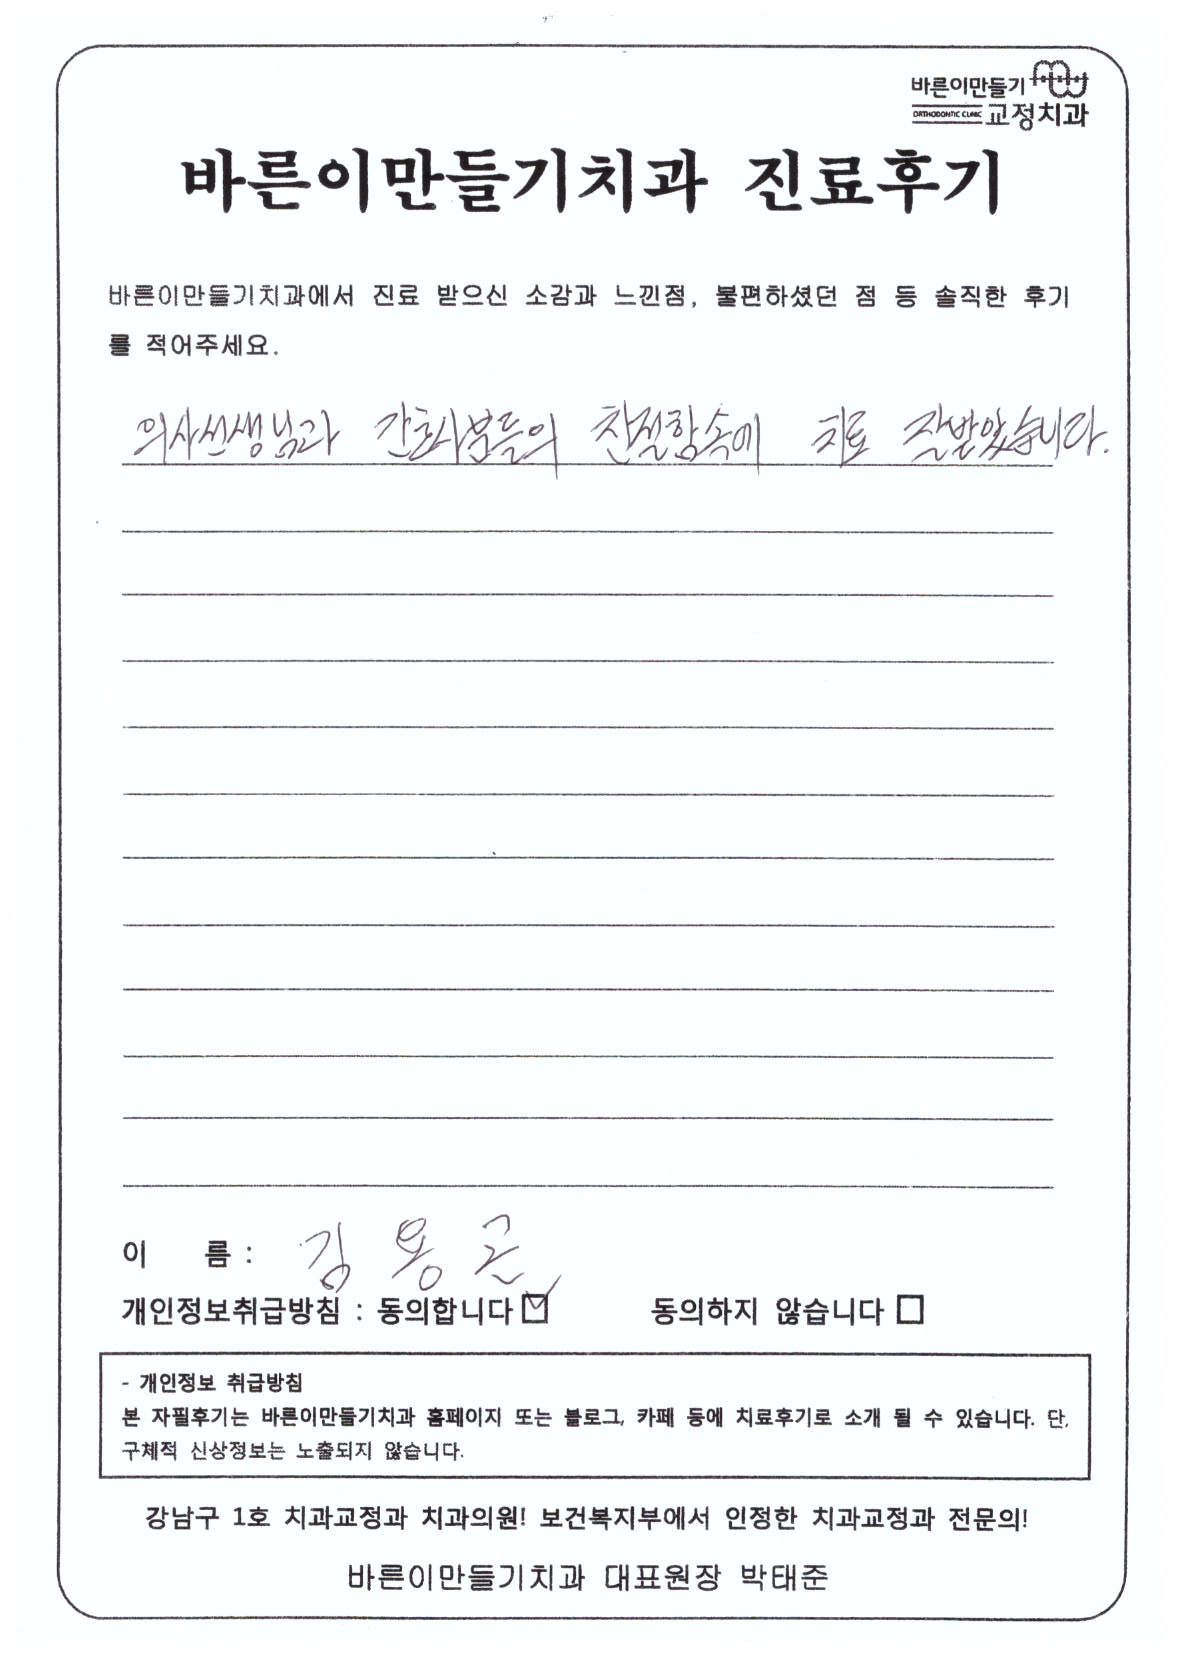 바른이만들기
ORTHODONTIC CLINIC 교정치과
바른이만들기치과 진료후기
바른이만들기치과에서 진료 받으신 소감과 느낀점, 불편하셨던 점 등 솔직한 후기
를 적어주세요.
의사선생님과 간호사분들의 친절함속에 치료 잘받았습니다.
이 름 : 김용근
개인정보취급방침 : 동의합니다 ☑ 동의하지 않습니다 ☐
- 개인정보 취급방침
본 자필후기는 바른이만들기치과 홈페이지 또는 블로그, 카페 등에 치료후기로 소개 될 수 있습니다. 단,
구체적 신상정보는 노출되지 않습니다.
강남구 1호 치과교정과 치과의원! 보건복지부에서 인정한 치과교정과 전문의!
바른이만들기치과 대표원장 박태준